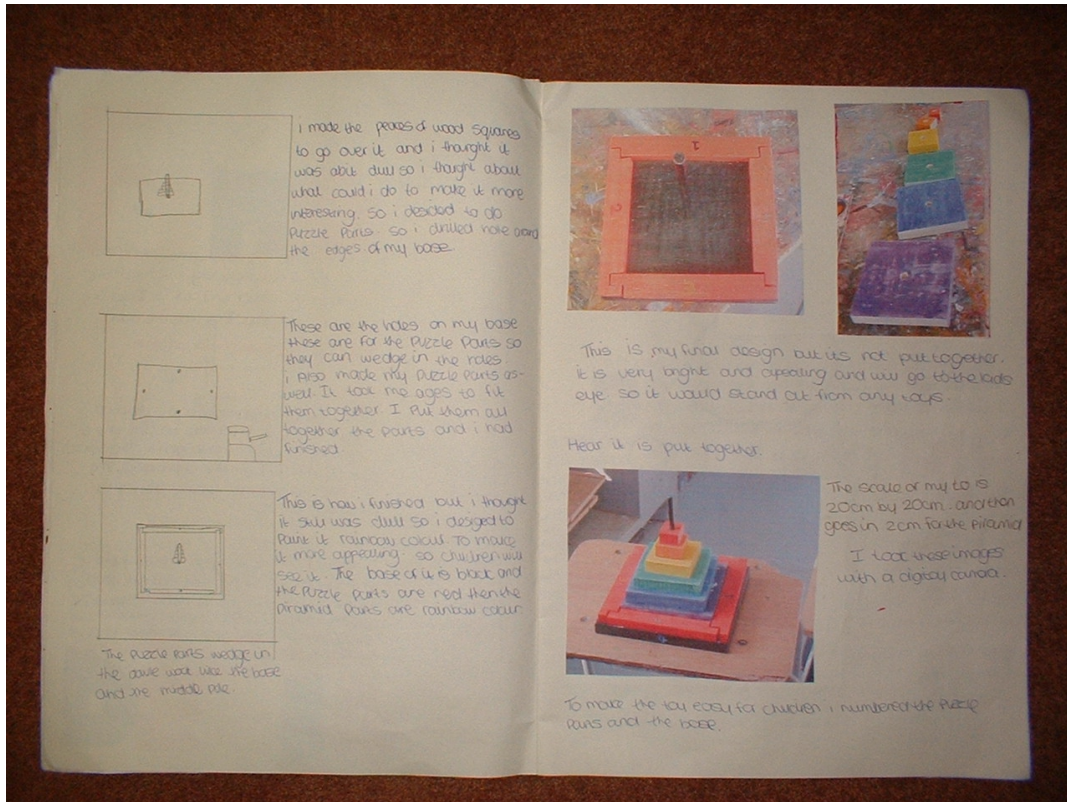 i made the peaces of wood squares
to go over it and i thought it
was abit dull so i thought about
what could i do to make it more
interesting. so i desided to do
Puzzle Parts. so i drilled hole around
the edges of my base.
These are the holes on my base
these are for the Puzzle Parts so
they can wedge in the holes.
i Also made my Puzzle Parts as-
well. It took me ages to fit
them together. I Put them all
together the parts and i had
finished
This is how i finished but i thought
it still was dull so i desiged to
Paint it rainbow colour. To make
it more appealing so children will
see it. The base of it is black and
the Puzzle parts are red then the
Piramid Parts are rainbow colour
The Puzzle Parts wedge in
the the base
and the middle Pole.
1
This is my final design but its not put together.
it is very bright and apealing and will go to the kids
eye. so it would stand out from any toys.
Hear it is put together.
The scale of my to is
20cm by 20cm. and then
goes in 2cm for the Piramid
I took these images
with a camera.
To make the toy easy for children i numbered the Puzzle
Parts and the base.